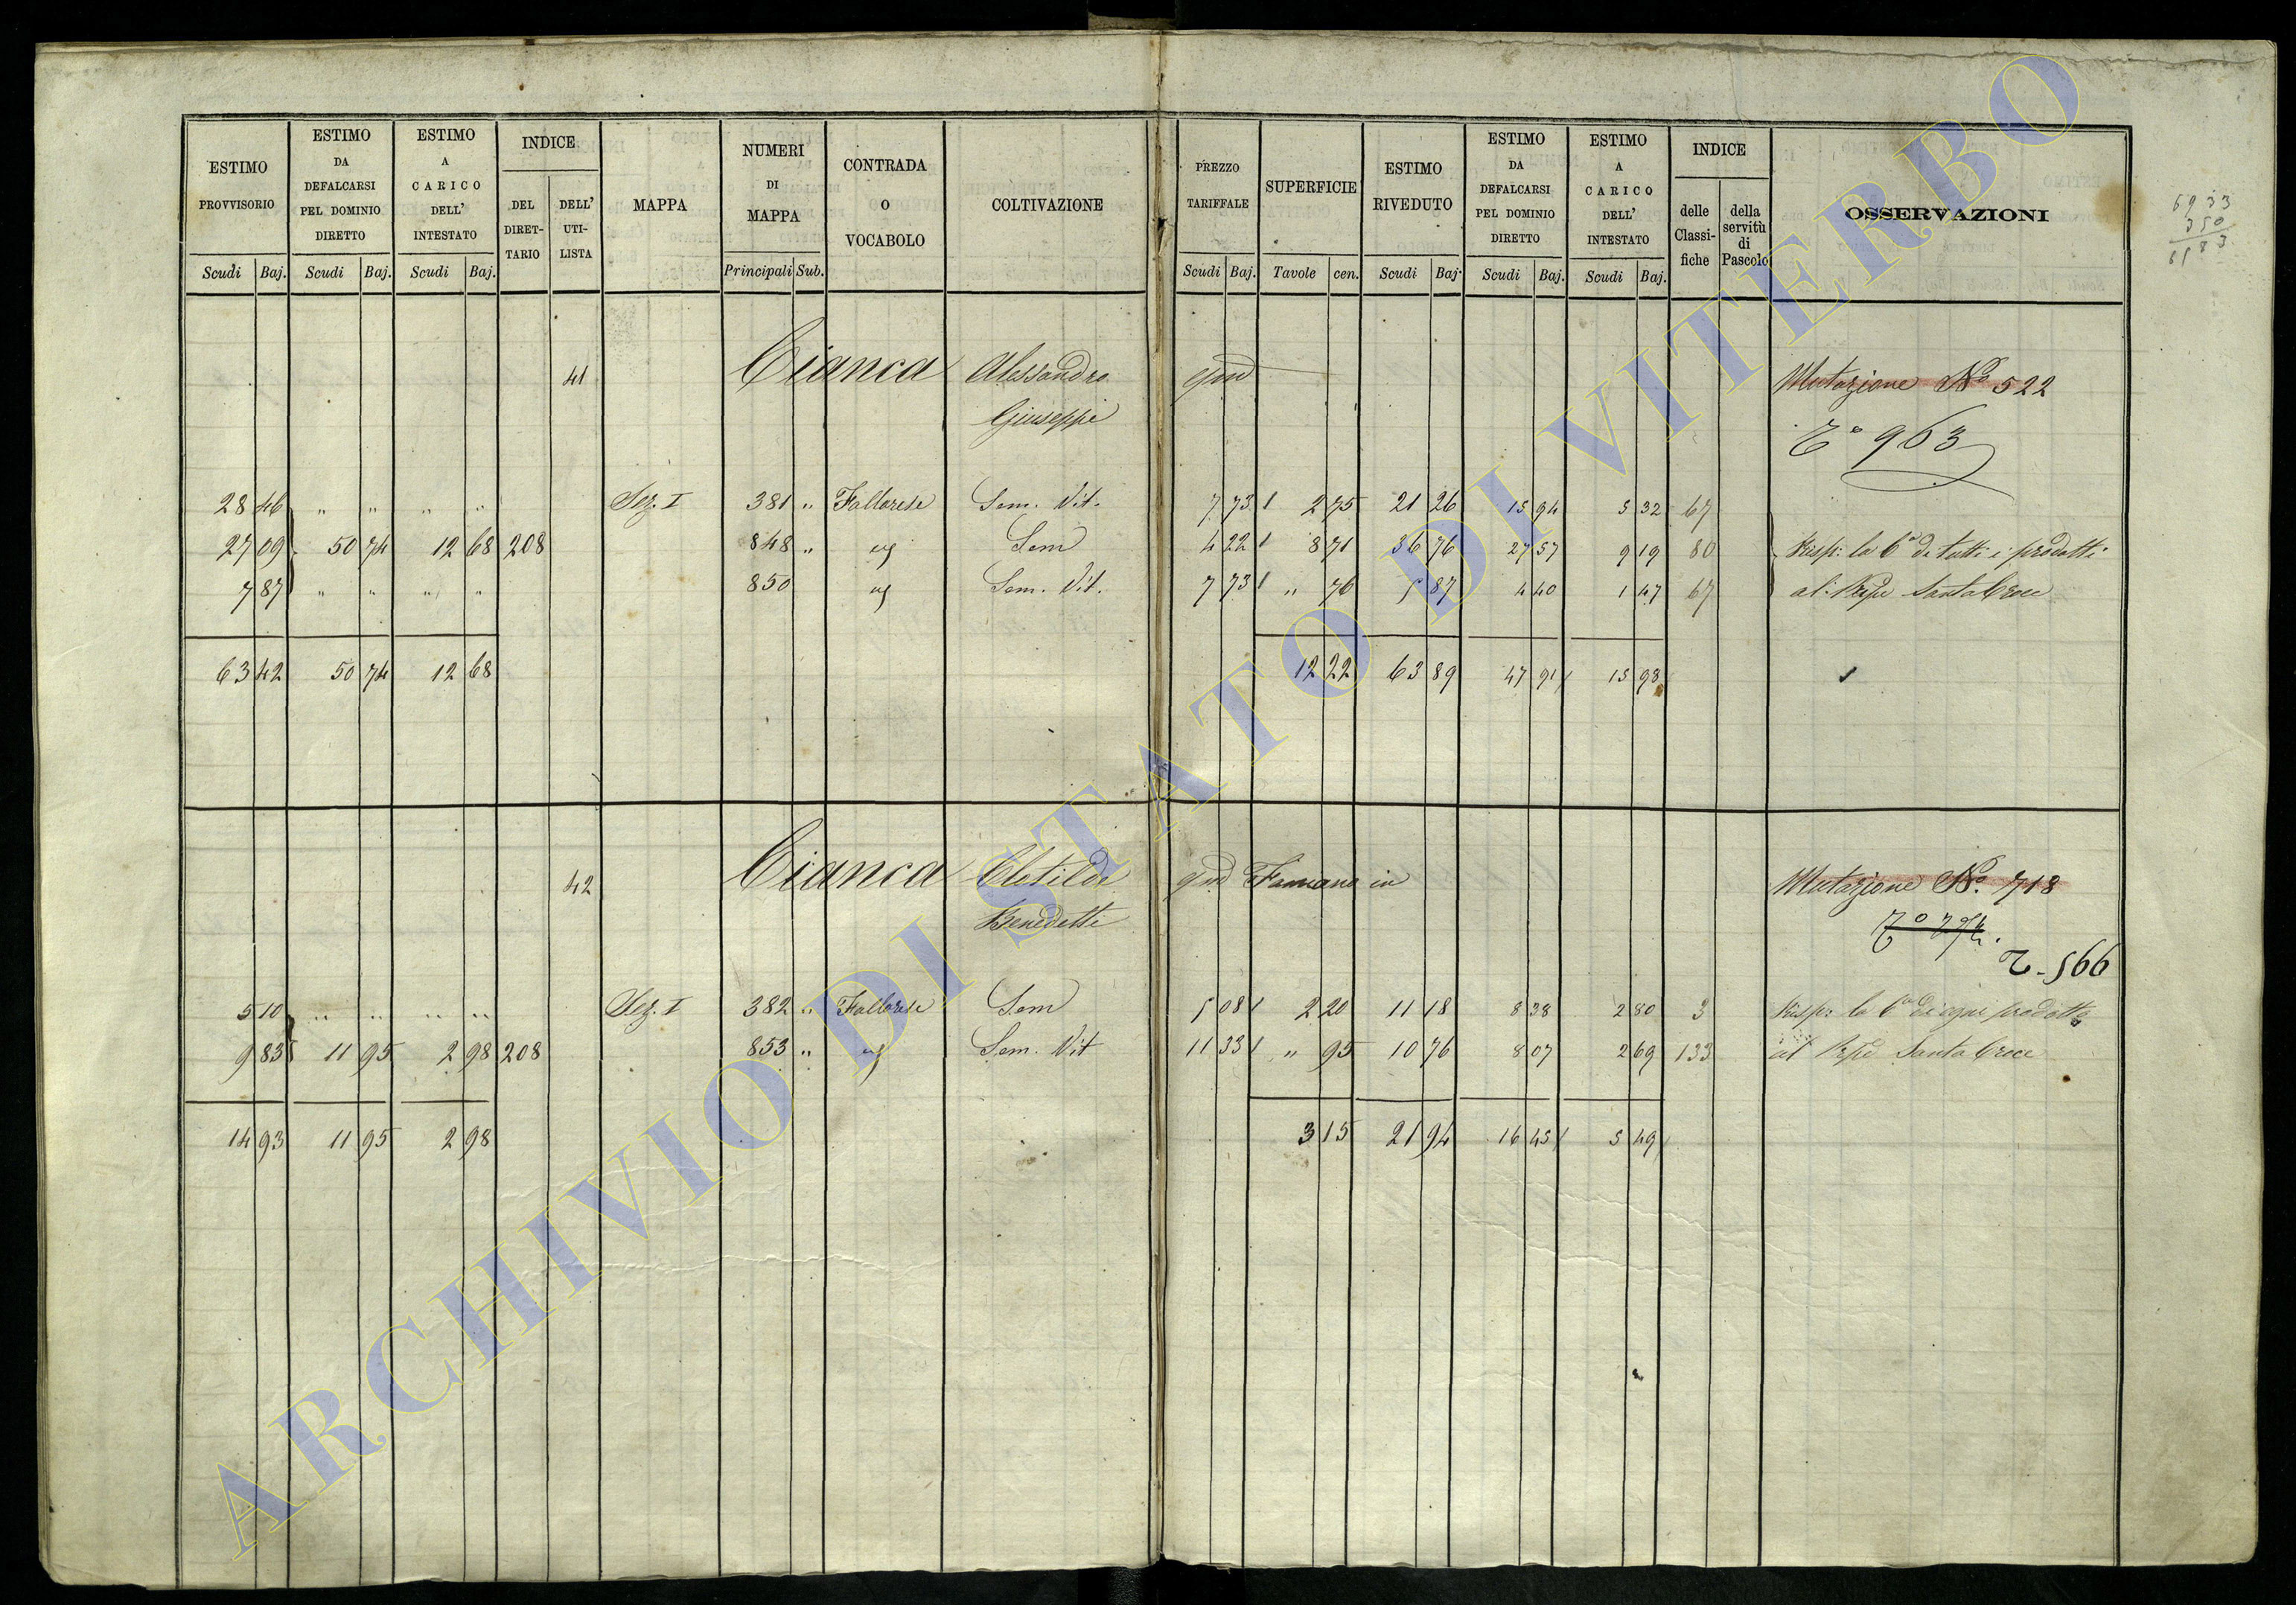 ESTIMO PROVVISORIO Scudi Baj.
ESTIMO DA DEFALCARSI PEL DOMINIO DIRETTO Scudi Baj.
ESTIMO A CARICO DELL' INTESTATO Scudi Baj.
INDICE DEL DIRET-TARIO DELL' UTI-LISTA
MAPPA
NUMERI DI MAPPA Principali Sub.
CONTRADA O VOCABOLO
COLTIVAZIONE
PREZZO TARIFFALE Scudi Baj.
SUPERFICIE Tavole cen.
ESTIMO RIVEDUTO Scudi Baj.
ESTIMO DA DEFALCARSI PEL DOMINIO DIRETTO Scudi Baj.
ESTIMO A CARICO DELL' INTESTATO Scudi Baj.
INDICE delle Classi-fiche della servitù di Pascolo
OSSERVAZIONI
6933
350
41 Cianca Alessandro qm Mutazione No 522
Giuseppe
To 963
28 46 " " " " Sez. I 381 " Fallarese Sem. Vit. 7 73 2 75 21 26 15 94 5 32 67
27 09 50 74 12 68 208 848 " Sem 4 22 8 71 36 76 27 57 9 19 80 Risp: la 6a di tutti i prodotti
7 87 " " " " 850 Sem. Vit. 7 73 " 76 5 87 4 40 1 47 67 al Santa Croce
63 42 50 74 12 68 12 22 63 89 47 91 15 98
42 Cianca Clotilde qm in Mutazione No. 718
Benedetti
T. 566
5 10 " " " " Sez. I 382 " Fallarese Sem 5 08 2 20 11 18 8 38 2 80 3 Risp: la 6a di ogni prodotto
9 83 11 95 2 98 208 853 " Sem. Vit 11 33 " 95 10 76 8 07 2 69 133 al Santa Croce
14 93 11 95 2 98 3 15 21 94 16 45 5 49
ARCHIVIO DI STATO DI VITERBO